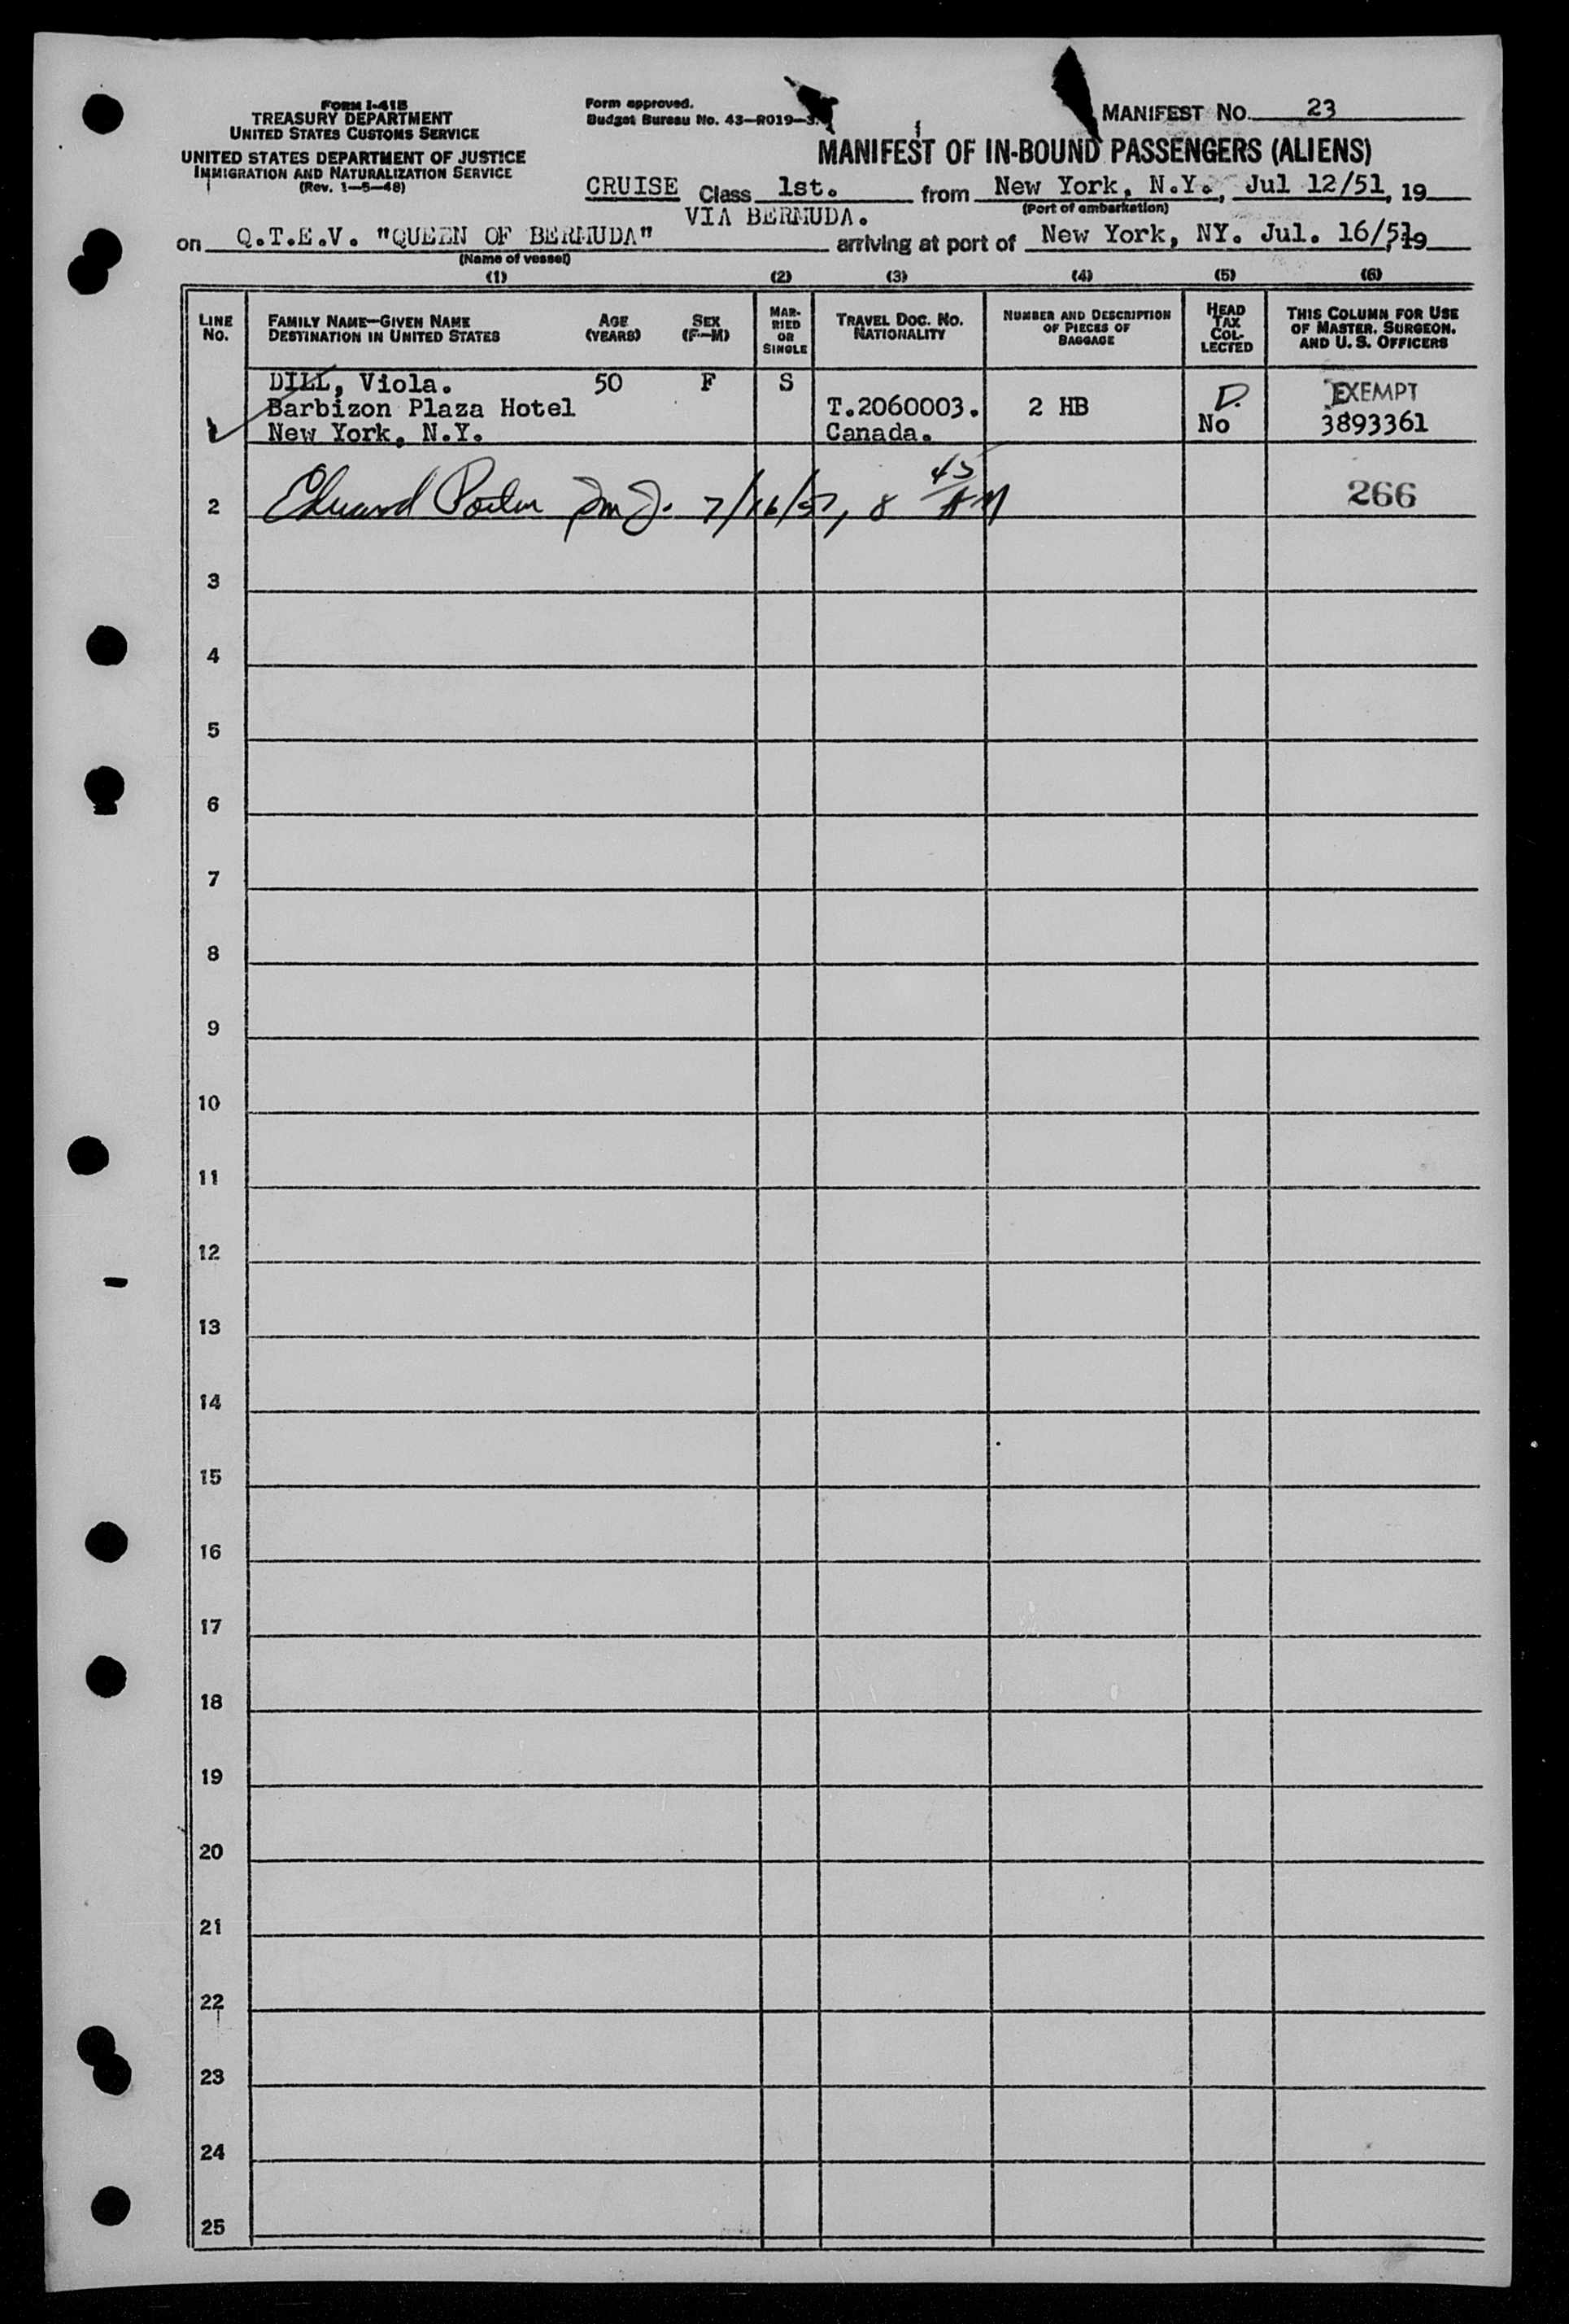 FORM I-41B
TREASURY DEPARTMENT
UNITED STATES CUSTOMS SERVICE
UNITED STATES DEPARTMENT OF JUSTICE
IMMIGRATION AND NATURALIZATION SERVICE
(Rev. 1-5-48)
Form approved.
Budget Bureau No. 43-R019-3.
MANIFEST No. 23
MANIFEST OF IN-BOUND PASSENGERS (ALIENS)
CRUISE Class 1st. from New York, N.Y., Jul 12/51, 19
VIA BERMUDA. (Port of embarkation)
on Q.T.E.V. "QUEEN OF BERMUDA" arriving at port of New York, NY. Jul. 16/51, 19
(Name of vessel)
(1) (2) (3) (4) (5) (6)
LINE No. FAMILY NAME—GIVEN NAME DESTINATION IN UNITED STATES AGE (YEARS) SEX (F—M) MARRIED OR SINGLE TRAVEL DOC. No. NATIONALITY NUMBER AND DESCRIPTION OF PIECES OF BAGGAGE HEAD TAX COLLECTED THIS COLUMN FOR USE OF MASTER, SURGEON, AND U. S. OFFICERS
DILL, Viola. 50 F S EXEMPT
Barbizon Plaza Hotel T.2060003. 2 HB D.
New York, N.Y. Canada. No 3893361
2 Edward 7/16/51, 8 45 AM 266
3
4
5
6
7
8
9
10
11
12
13
14
15
16
17
18
19
20
21
22
23
24
25